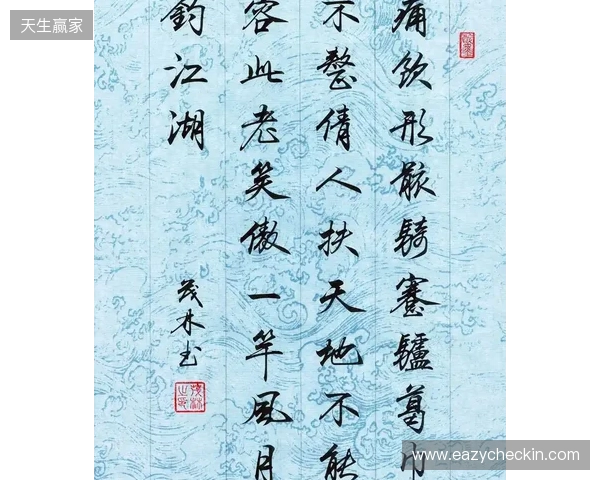 天生赢家
痛飲形骸騎蹇驢葛巾
不整倩人扶天地不能
容此老笑傲一竿風月
釣江湖
茂林书
www.eazycheckin.com